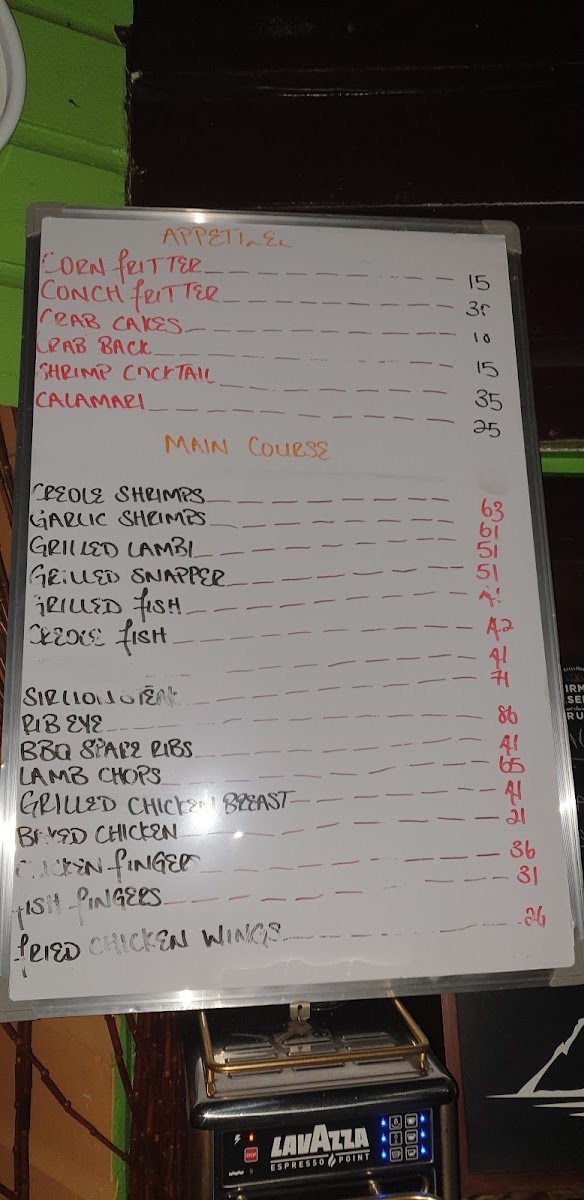 APPETI
CORN FRITTER 15
CONCH FRITTER
CRAB CAKES 10
CRAB BACK 15
SHRIMP COCKTAIL 35
CALAMARI 25
MAIN COURSE
CREOLE SHRIMPS 63
GARLIC SHRIMPS 61
GRILLED LAMBI 51
GRILLED SNAPPER 51
GRILLED FISH
CREOLE FISH 42
41
SIRLIOIN STEAK 71
RIB EYE 86
BBQ SPARE RIBS 41
LAMB CHOPS 65
GRILLED CHICKEN BREAST 41
BAKED CHICKEN 21
CHICKEN FINGERS 36
FISH FINGERS 31
FRIED CHICKEN WINGS 26
LAVAZZA
ESPRESSO POINT
STOP